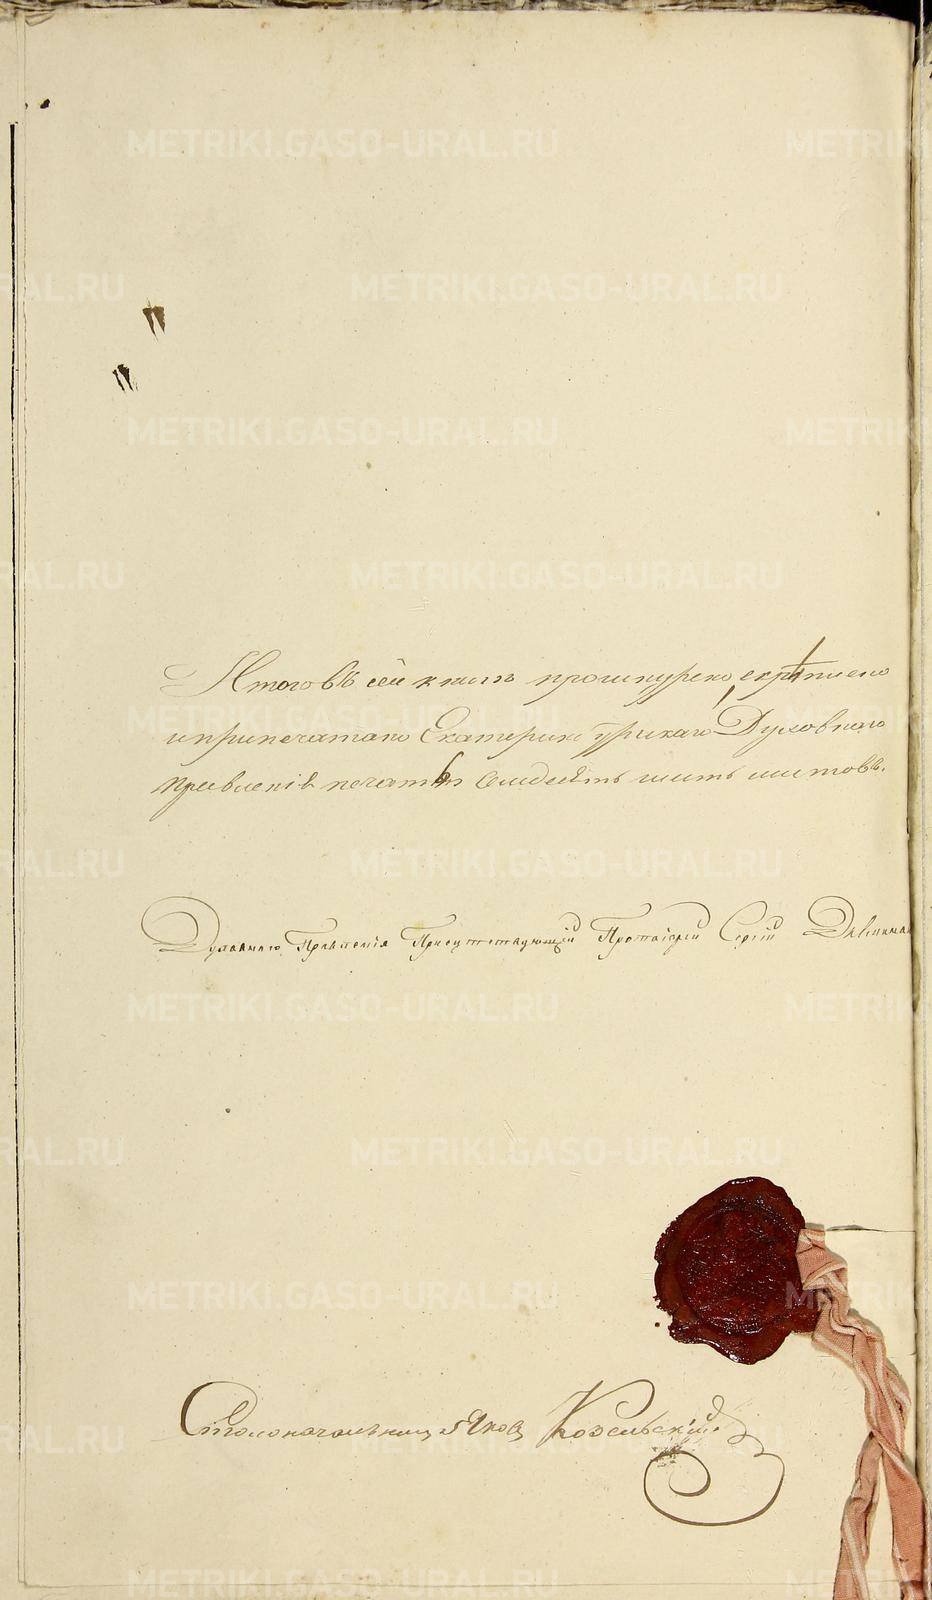 Итого въ сей книгѣ прошнуровано, скрѣплено
и припечатано Екатеринбургскаго Духовного
Правленія печатью Семдесятъ листовъ.
Духовнаго Правленія Присутствующій Протоіерей Сергій
Столоначальникъ Яковъ Козельскій
METRIKI.GASO-URAL.RU